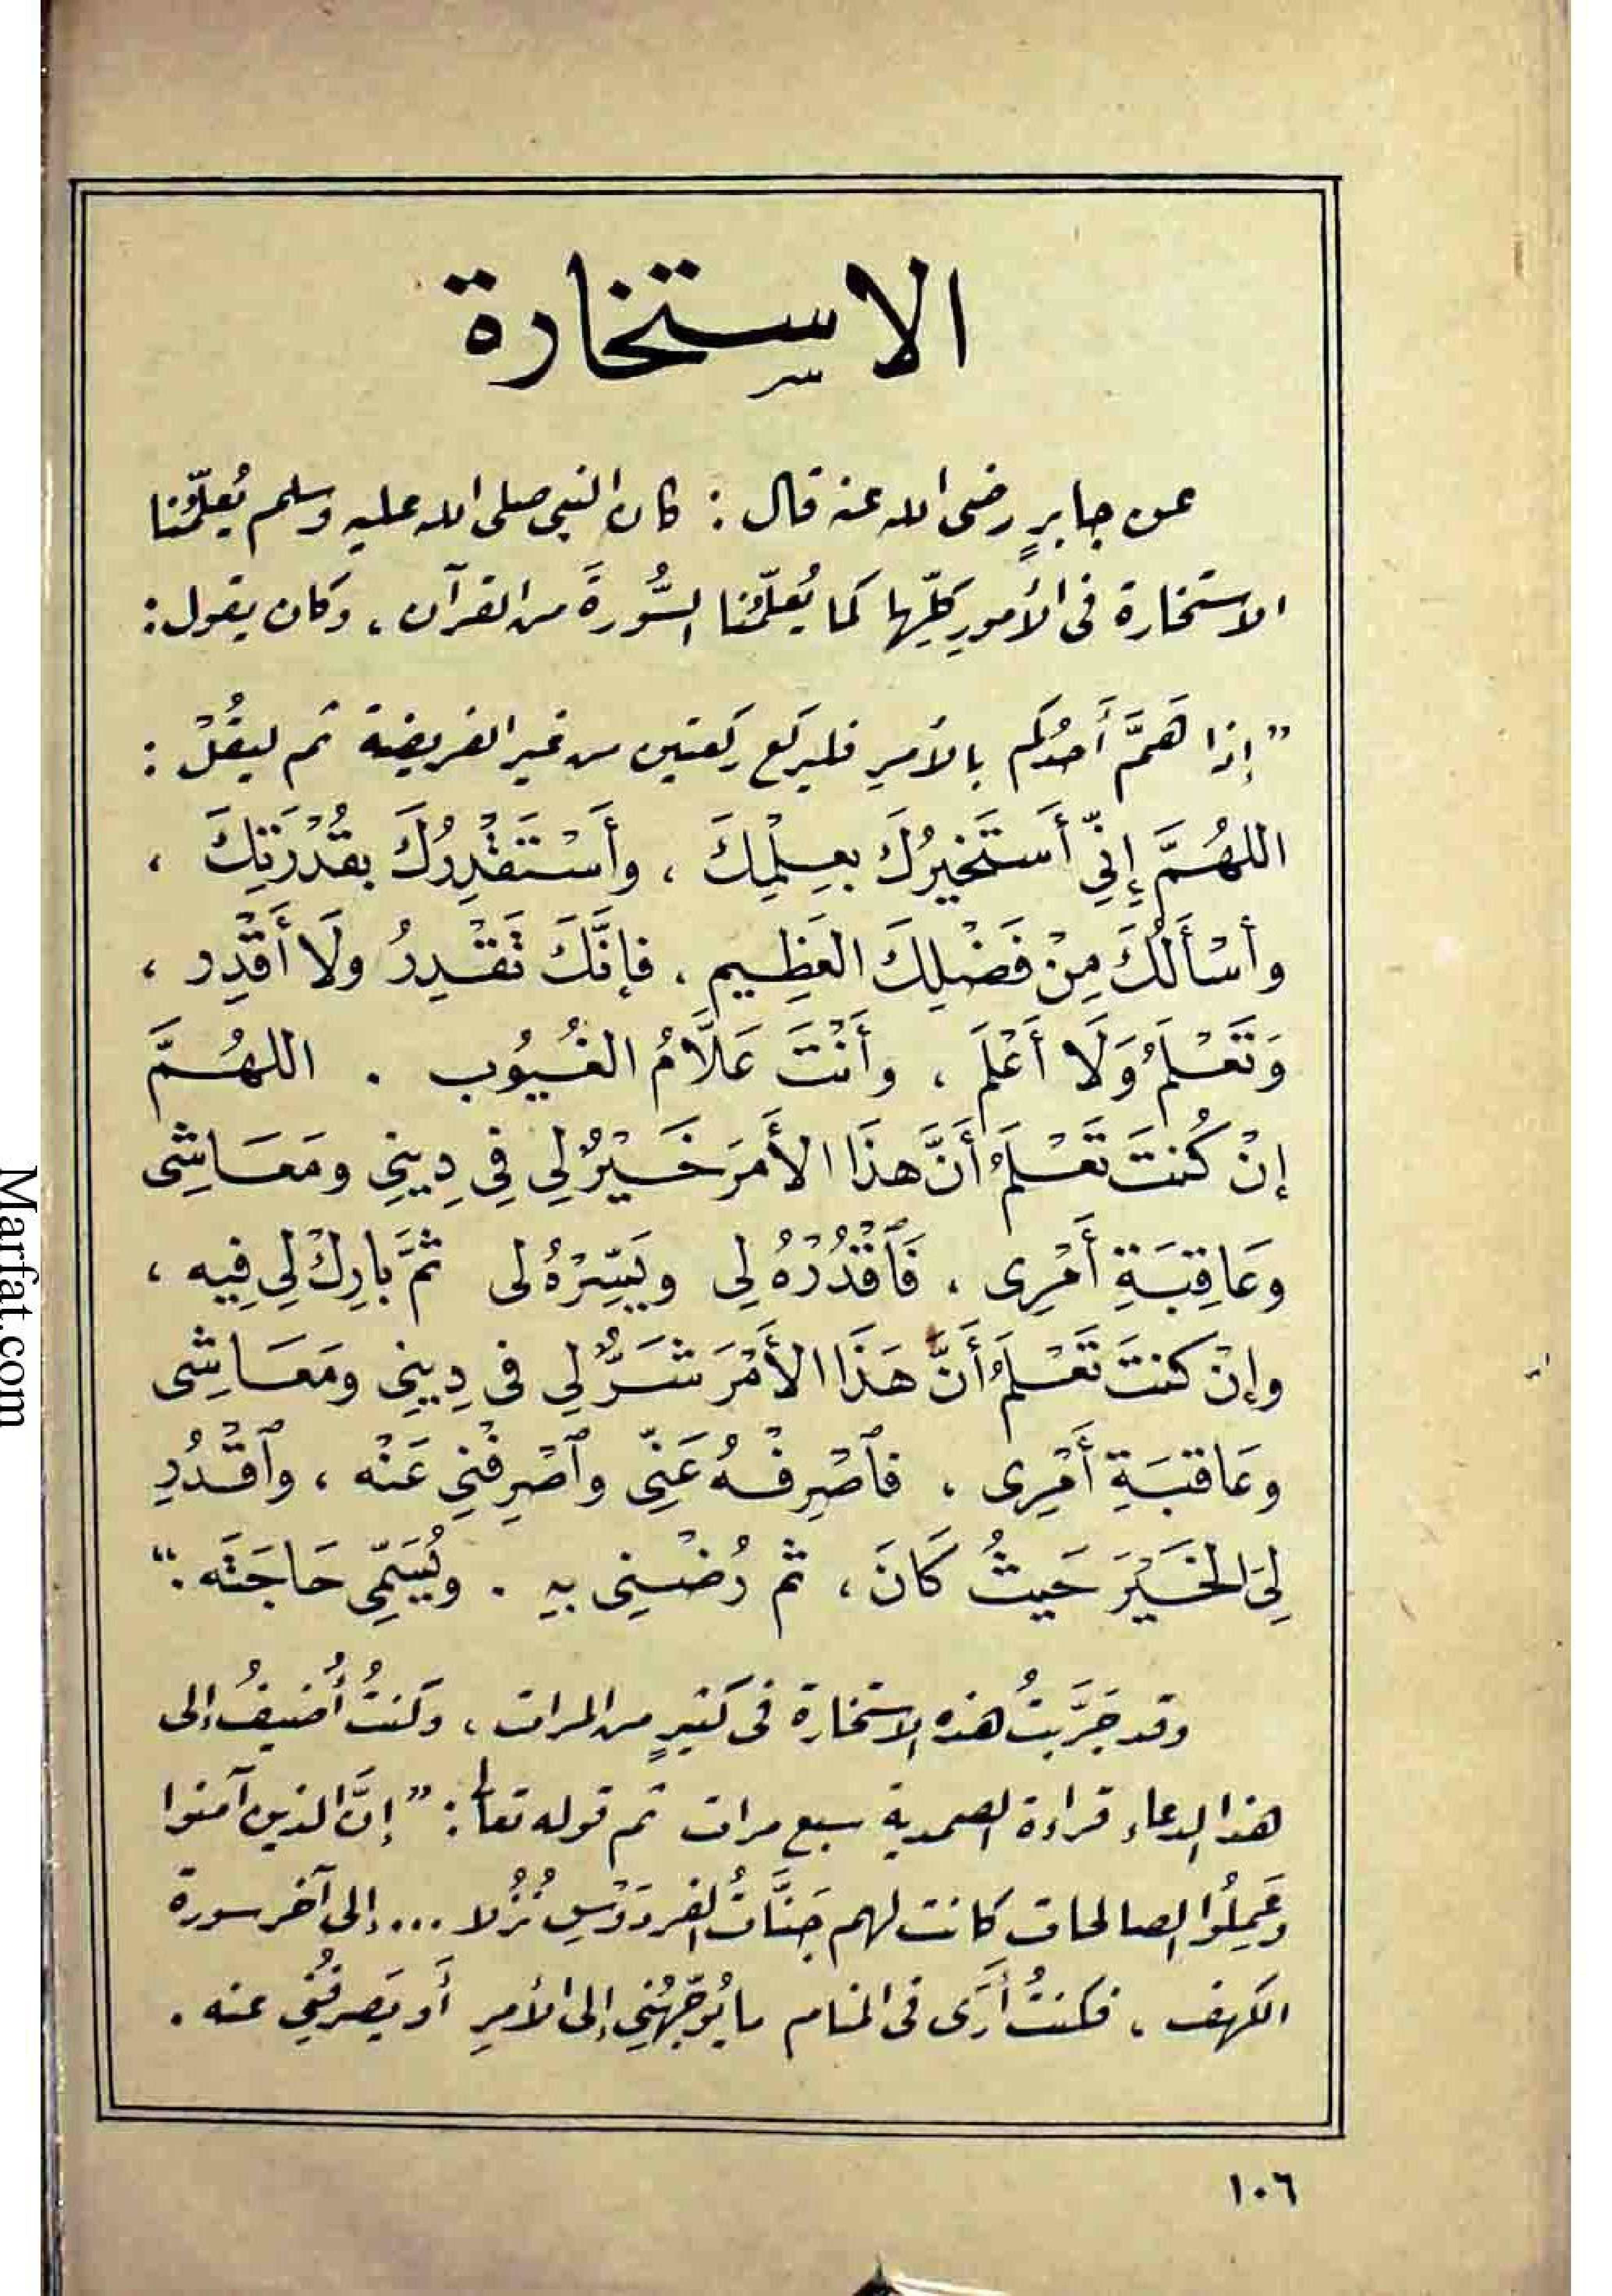 الاستخارة
عن جابرٍ رضى الله عنه قال : كان النبى صلى الله عليه وسلم يُعلّمُنا
الاستخارة فى الأمورِ كلِّها كما يُعلّمُنا السُّورةَ من القرآن ، وكان يقول :
” إذا هَمَّ أَحدُكم بالأمرِ فليركَع ركعتين من غير الفريضة ثم ليقُلْ :
اللهُمَّ إِنِّي أَستَخيرُكَ بعِلْمِكَ ، وأَسْتَقْدِرُكَ بقُدْرَتِكَ ،
وأسْأَلُكَ مِنْ فَضْلِكَ العَظِيم ، فإنَّكَ تَقْدِرُ ولَا أَقْدِر ،
وَتَعْلَمُ وَلَا أَعْلَم ، وأَنْتَ عَلَّامُ الغُيُوب . اللهُمَّ
إنْ كُنتَ تَعْلَمُ أَنَّ هذَا الأَمرَ خَيْرٌ لِي فِي دِينِي ومَعَاشِى
وعَاقِبَةِ أَمْرِى ، فَٱقْدُرْهُ لِي ويَسِّرْهُ لى ثمَّ بارِكْ لِي فِيه ،
وإنْ كنتَ تَعْلَمُ أَنَّ هَذَا الأَمْرَ شَرٌّ لِي فى دِينِي ومَعَاشِى
وعَاقبَةِ أَمْرِى ، فٱصْرِفْهُ عَنِّى وٱصْرِفْنِي عَنْه ، وٱقْدُرِ
لِىَ الخَيْرَ حَيثُ كَانَ ، ثم رَضِّنِى بهِ . ويُسَمِّى حَاجَتَه .“
وقد جَرَّبتُ هذه الاستخارة فى كثيرٍ من المرات ، وكنتُ أُضيفُ إلى
هذا الدعاء قراءة الصمدية سبع مرات ثم قوله تعالى : ” إنَّ الذين آمنوا
وعَمِلُوا الصالحات كانت لهم جَنَّاتُ الفردَوْسِ نُزُلا ... إلى آخر سورة
الكهف ، فكنتُ أرَى فى المنام ما يُوَجِّهُنِى إلى الأمرِ أَو يَصرفُنِي عنه .
١٠٦
Marfat.com